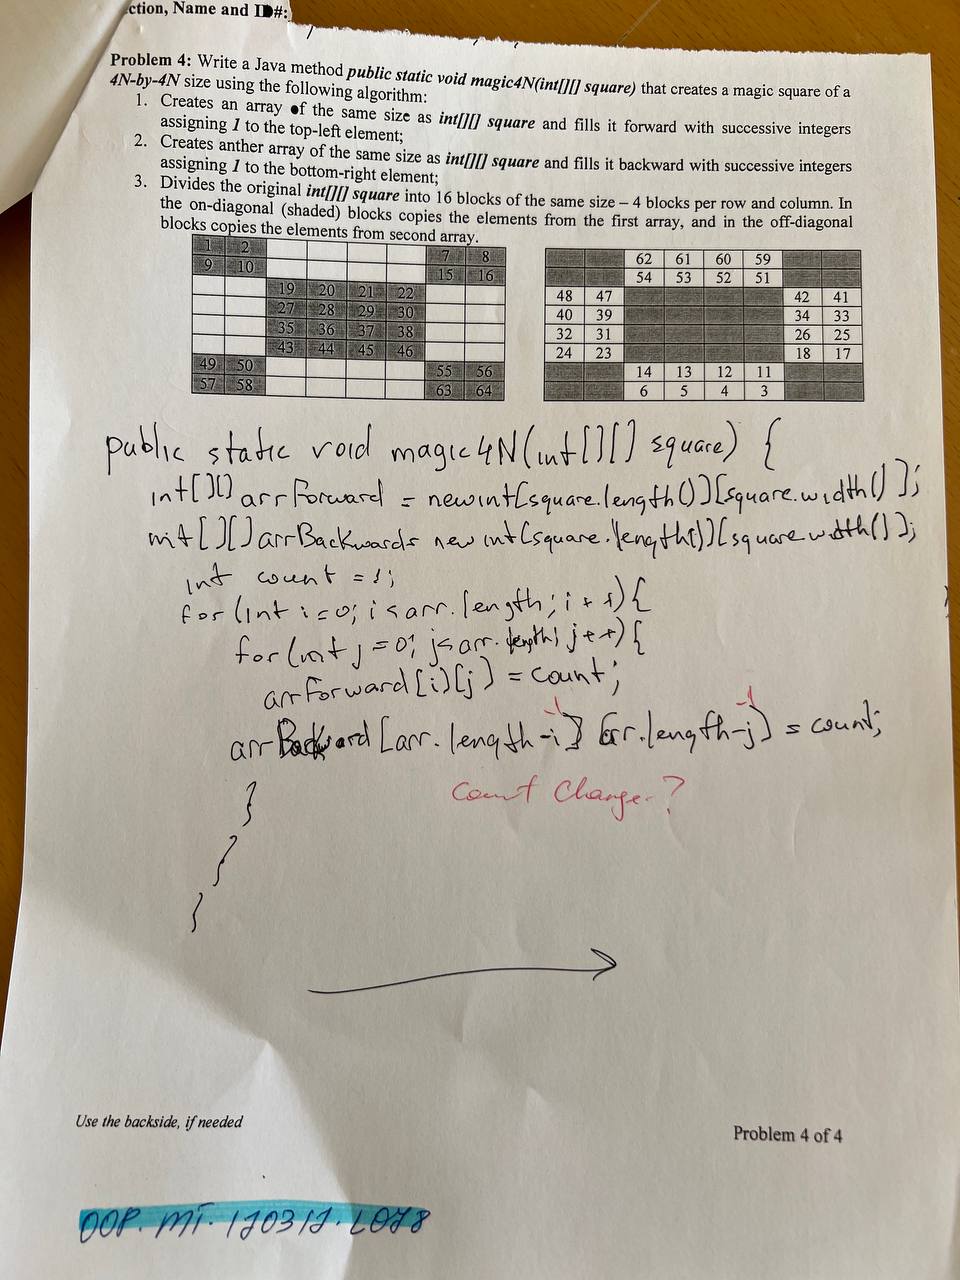 ction, Name and ID#:
Problem 4: Write a Java method public static void magic4N(int[][] square) that creates a magic square of a
4N-by-4N size using the following algorithm:
1. Creates an array of the same size as int[][] square and fills it forward with successive integers
assigning 1 to the top-left element;
2. Creates anther array of the same size as int[][] square and fills it backward with successive integers
assigning 1 to the bottom-right element;
3. Divides the original int[][] square into 16 blocks of the same size – 4 blocks per row and column. In
the on-diagonal (shaded) blocks copies the elements from the first array, and in the off-diagonal
blocks copies the elements from second array.
1 2 7 8
9 10 15 16
19 20 21 22
27 28 29 30
35 36 37 38
43 44 45 46
49 50 55 56
57 58 63 64
62 61 60 59
54 53 52 51
48 47 42 41
40 39 34 33
32 31 26 25
24 23 18 17
14 13 12 11
6 5 4 3
public static void magic4N(int[][] square) {
int[][] arrForward = new int[square.length()][square.width()];
int[][] arrBackwards new int[square.length()][square width()];
int count = 1;
for (int i=0; i<arr.length; i++){
for (int j=0; j<arr.length; j++){
arrForward[i][j] = count;
arrBackward[arr.length-i-1][arr.length-j-1] = count;
count change?
}
}
}
Use the backside, if needed
Problem 4 of 4
OOP. MT. 120312. L078